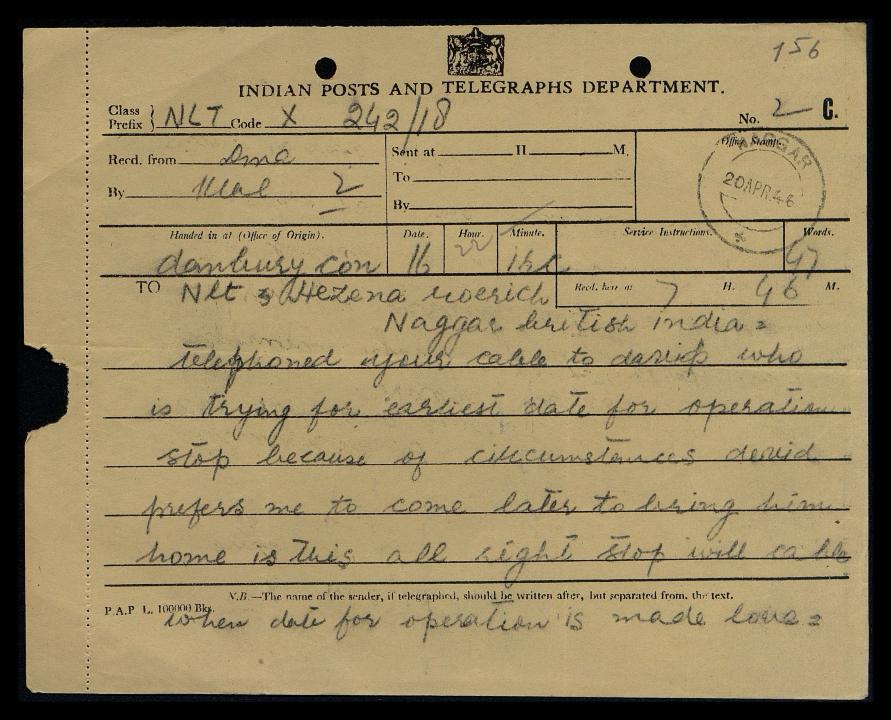 156
INDIAN POSTS AND TELEGRAPHS DEPARTMENT.
Class Prefix } NLT Code X 242/18 No. 2 C.
Recd. from Sent at H. M. Office Stamp.
To NAGGAR
By 2 By 20 APR 46
Handed in at (Office of Origin). Date. Hour. Minute. Service Instructions. Words.
danbury con 16 22 47
TO Nlt Helena roerich Recd. here at 7 H. 46 M.
Naggar british india =
telephoned your cable to david who
is trying for earliest date for operation
stop because of circumstances david
prefers me to come later to bring him
home is this all right stop will cable
N.B.—The name of the sender, if telegraphed, should be written after, but separated from, the text.
P.A.P L. 100000 Bks.
when date for operation is made love =